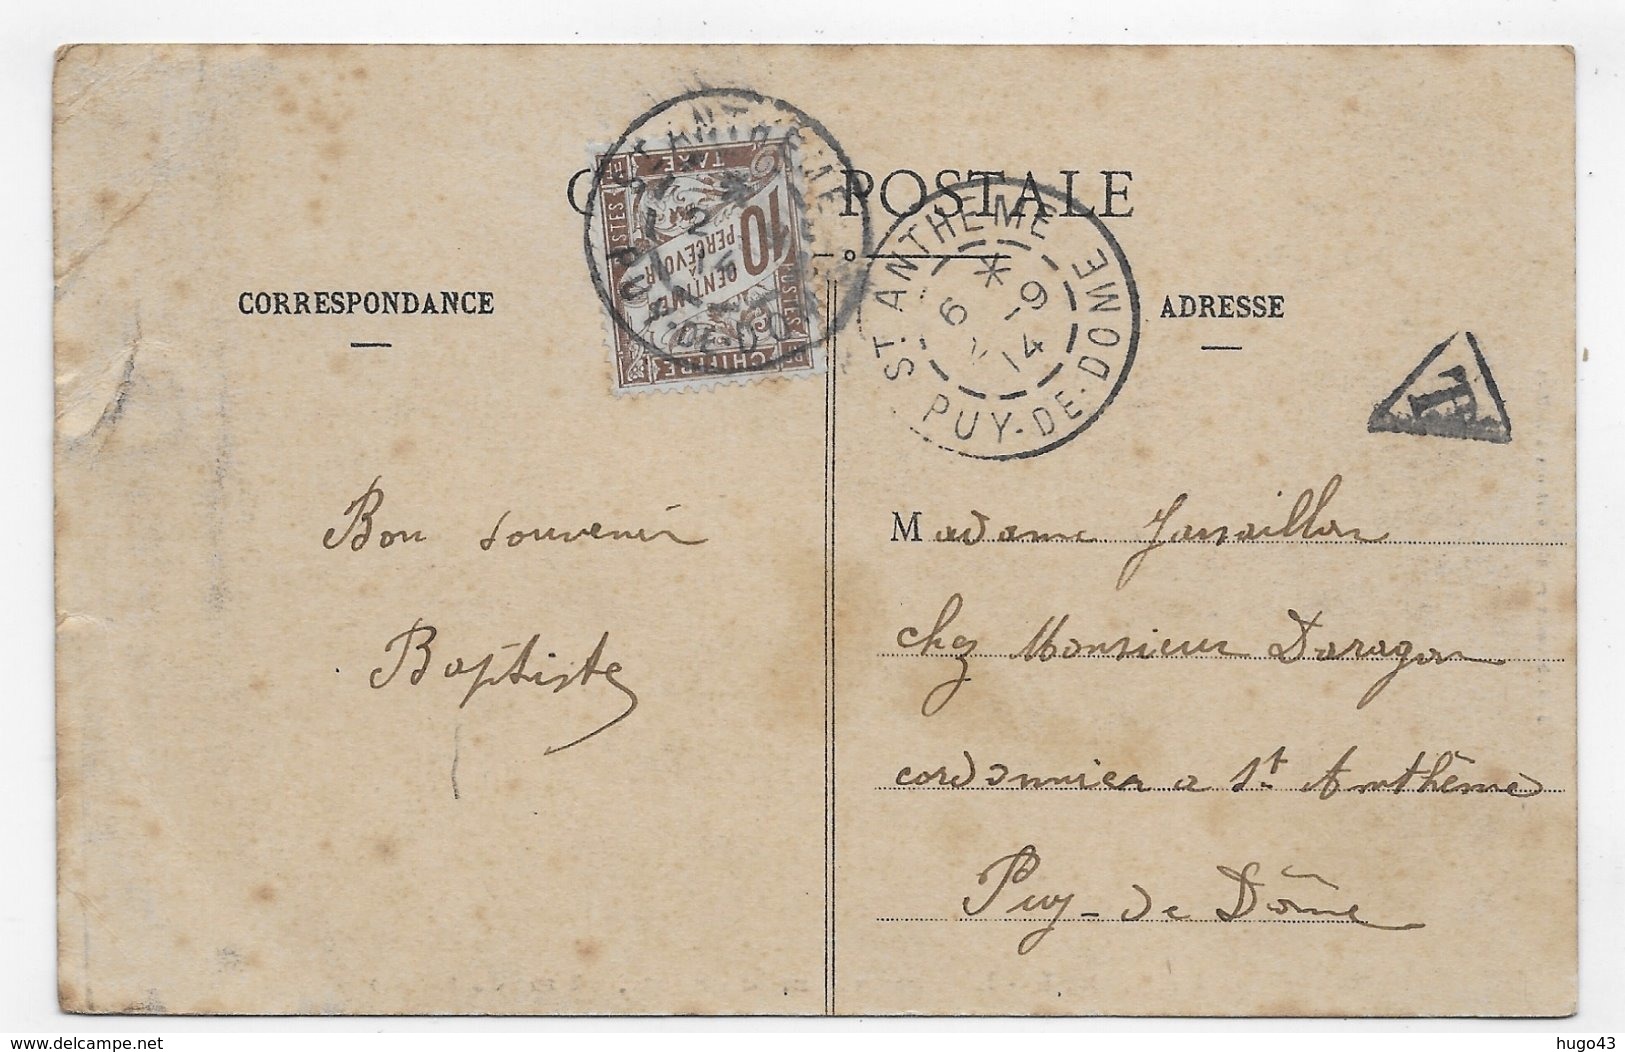 POSTALE
CORRESPONDANCE
ADRESSE
POSTES
TAXE
10
CENTIMES
À
PERCEVOIR
POSTES
CHIFFRE
ST. ANTHÈME
6 * -9
14
PUY-DE-DOME
T
Bon souvenir
Baptiste
Madame
chez Monsieur Daragon
cordonnier a St Anthême
Puy-de Dôme
www.delcampe.net
hugo43